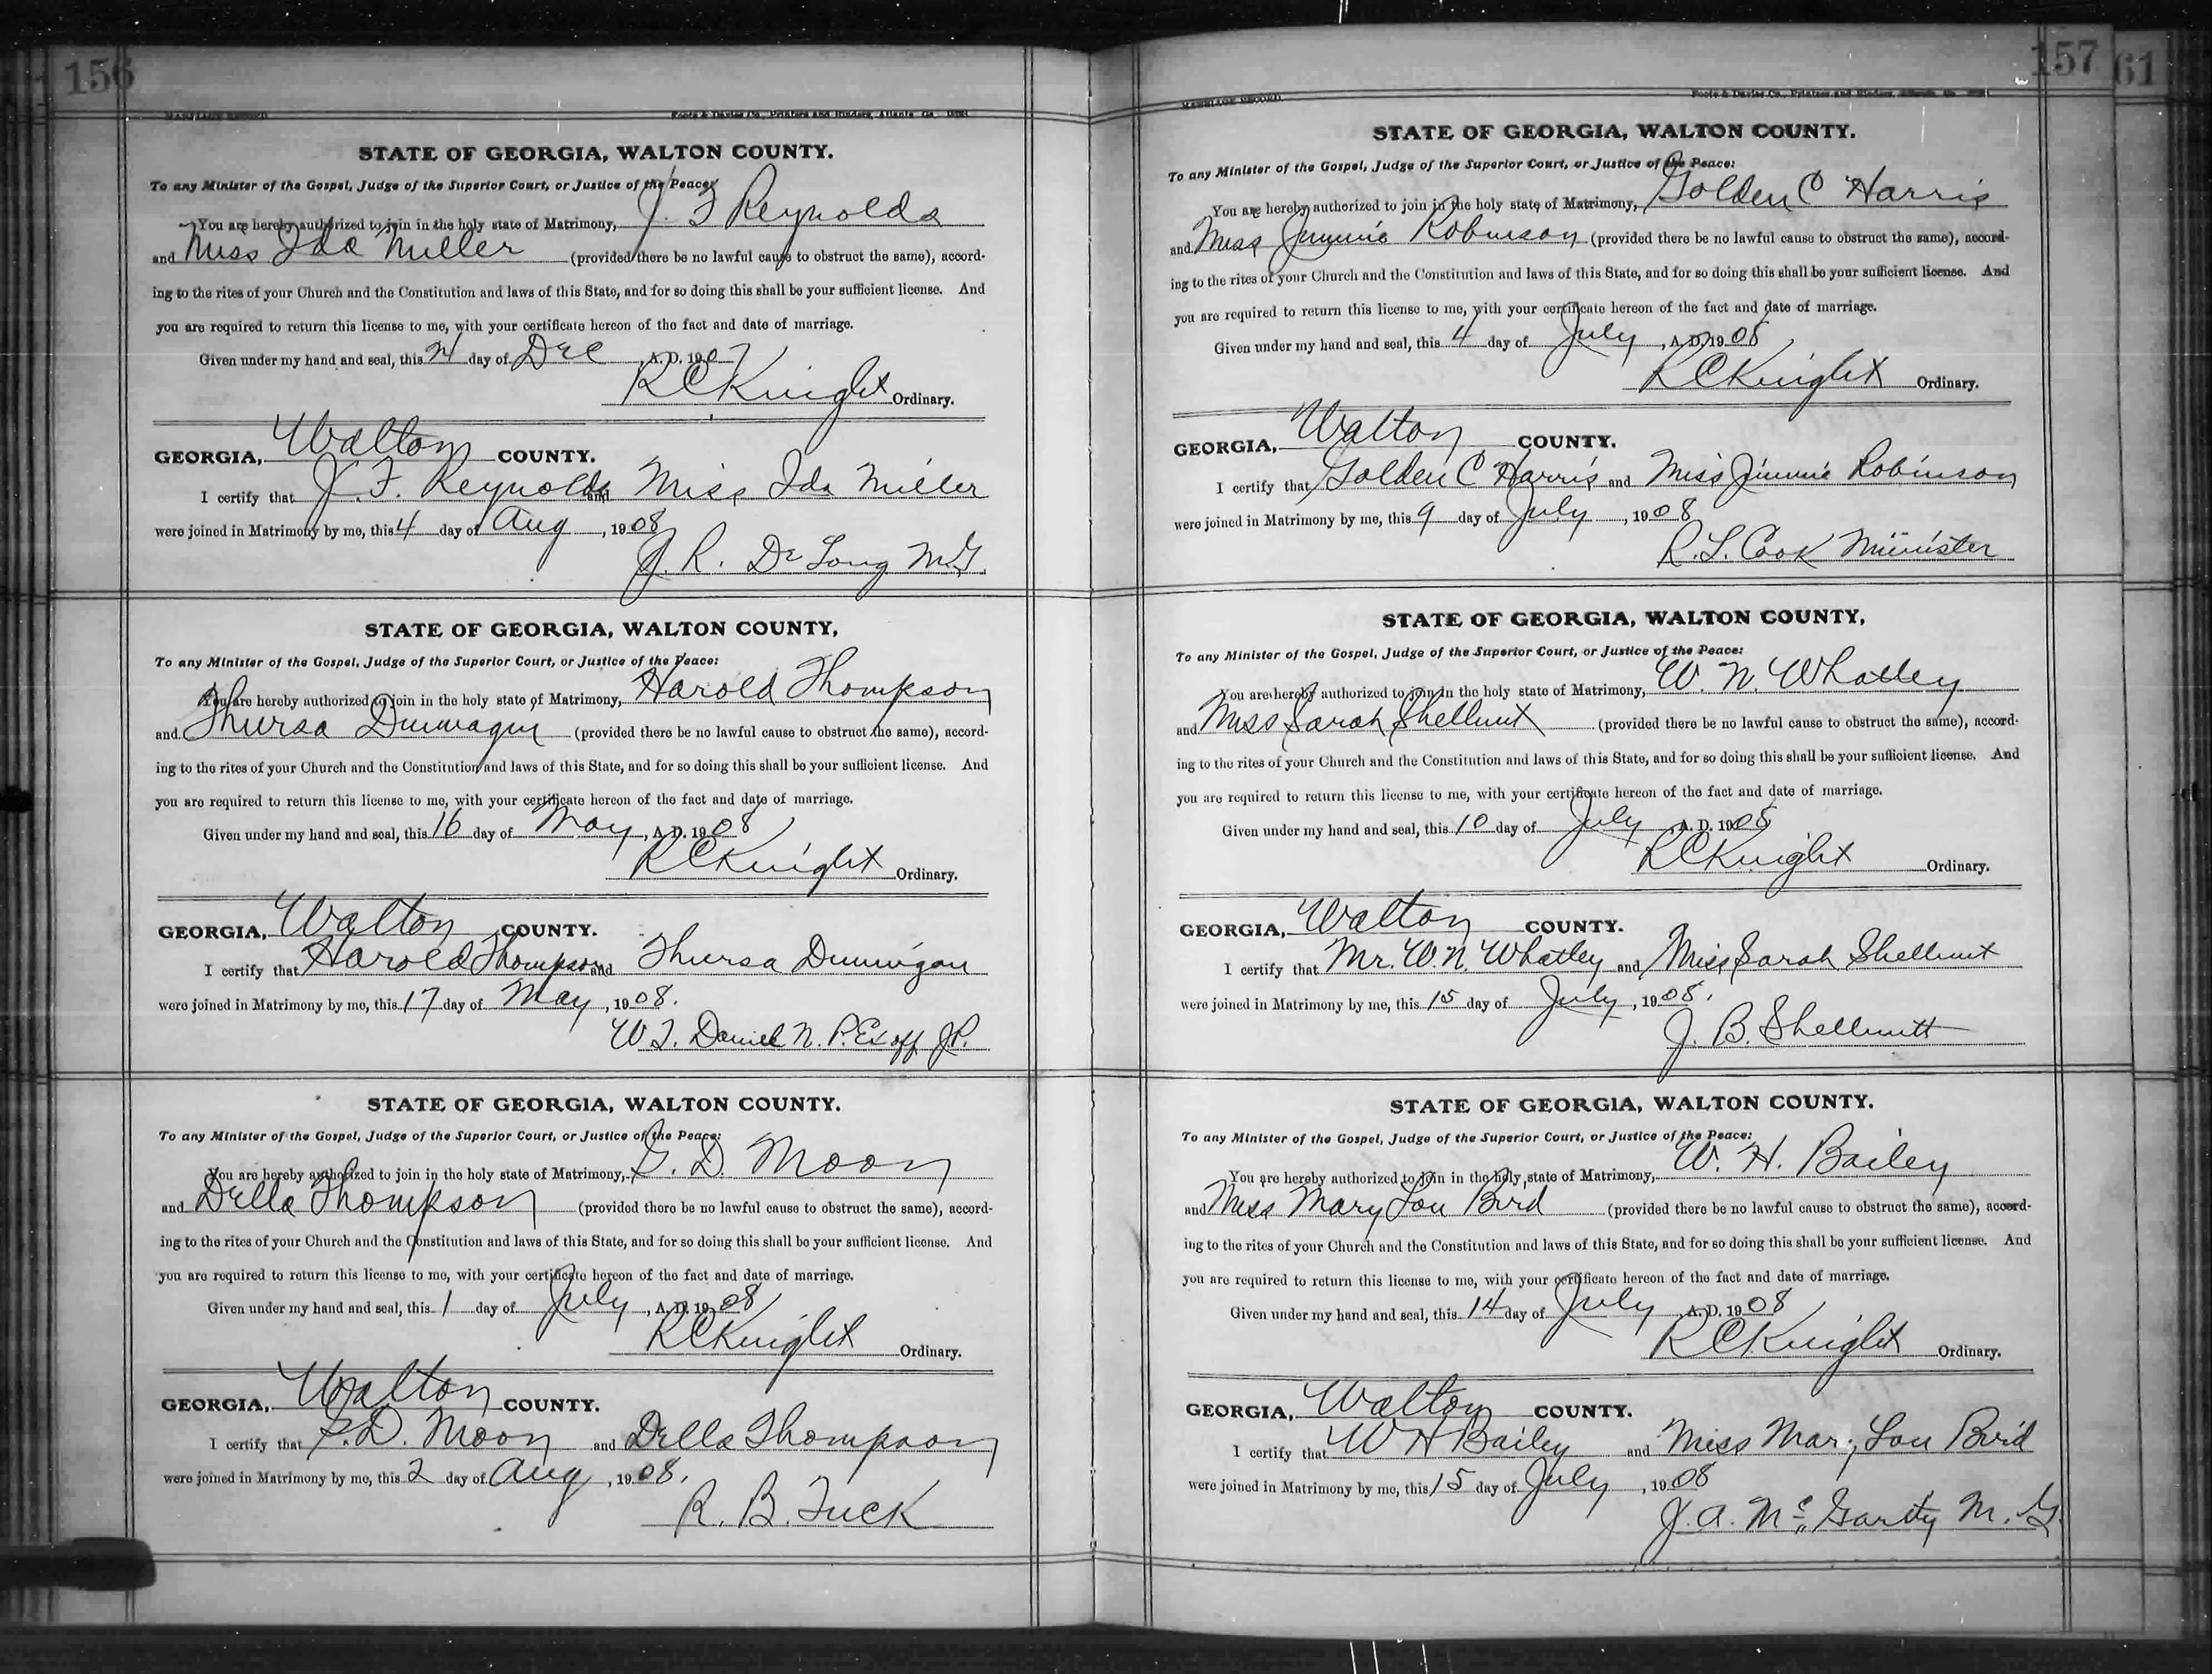 156
MARRIAGE RECORD Foote & Davies Co., Printers and Binders, Atlanta, Ga.
STATE OF GEORGIA, WALTON COUNTY.
To any Minister of the Gospel, Judge of the Superior Court, or Justice of the Peace:
You are hereby authorized to join in the holy state of Matrimony, J. F Reynolds
and Miss Ida Miller (provided there be no lawful cause to obstruct the same), accord-
ing to the rites of your Church and the Constitution and laws of this State, and for so doing this shall be your sufficient license. And
you are required to return this license to me, with your certificate hereon of the fact and date of marriage.
Given under my hand and seal, this 21 day of Dec , A. D. 1907
R C Knight Ordinary.
GEORGIA, Walton COUNTY.
I certify that J. F. Reynolds and Miss Ida Miller
were joined in Matrimony by me, this 4 day of Aug , 1908
J. R. De Long M.G.
STATE OF GEORGIA, WALTON COUNTY,
To any Minister of the Gospel, Judge of the Superior Court, or Justice of the Peace:
You are hereby authorized to join in the holy state of Matrimony, Harold Thompson
and Thursa (provided there be no lawful cause to obstruct the same), accord-
ing to the rites of your Church and the Constitution and laws of this State, and for so doing this shall be your sufficient license. And
you are required to return this license to me, with your certificate hereon of the fact and date of marriage.
Given under my hand and seal, this 16 day of May , A. D. 1908
R C Knight Ordinary.
GEORGIA, Walton COUNTY.
I certify that Harold Thompson and Thursa Dunnigan
were joined in Matrimony by me, this 17 day of May , 1908.
W T. Daniel N. P. Ex off J.P.
STATE OF GEORGIA, WALTON COUNTY.
To any Minister of the Gospel, Judge of the Superior Court, or Justice of the Peace:
You are hereby authorized to join in the holy state of Matrimony, S. D. Moon
and Della Thompson (provided there be no lawful cause to obstruct the same), accord-
ing to the rites of your Church and the Constitution and laws of this State, and for so doing this shall be your sufficient license. And
you are required to return this license to me, with your certificate hereon of the fact and date of marriage.
Given under my hand and seal, this 1 day of July , A. D. 1908
R C Knight Ordinary.
GEORGIA, Walton COUNTY.
I certify that S. D. Moon and Della Thompson
were joined in Matrimony by me, this 2 day of Aug , 1908.
R. B. Tuck
157 61
MARRIAGE RECORD Foote & Davies Co., Printers and Binders, Atlanta, Ga.
STATE OF GEORGIA, WALTON COUNTY.
To any Minister of the Gospel, Judge of the Superior Court, or Justice of the Peace:
You are hereby authorized to join in the holy state of Matrimony, Golden C Harris
and Miss Jimmie Robinson (provided there be no lawful cause to obstruct the same), accord-
ing to the rites of your Church and the Constitution and laws of this State, and for so doing this shall be your sufficient license. And
you are required to return this license to me, with your certificate hereon of the fact and date of marriage.
Given under my hand and seal, this 4 day of July , A. D. 1908
R C Knight Ordinary.
GEORGIA, Walton COUNTY.
I certify that Golden C Harris and Miss Jimmie Robinson
were joined in Matrimony by me, this 9 day of July , 1908
R. L. Cook Minister
STATE OF GEORGIA, WALTON COUNTY,
To any Minister of the Gospel, Judge of the Superior Court, or Justice of the Peace:
You are hereby authorized to join in the holy state of Matrimony, W. N. Whatley
and Miss Sarah Shellnut (provided there be no lawful cause to obstruct the same), accord-
ing to the rites of your Church and the Constitution and laws of this State, and for so doing this shall be your sufficient license. And
you are required to return this license to me, with your certificate hereon of the fact and date of marriage.
Given under my hand and seal, this 10 day of July , A. D. 1908
R C Knight Ordinary.
GEORGIA, Walton COUNTY.
I certify that Mr. W. N. Whatley and Miss Sarah Shellnut
were joined in Matrimony by me, this 15 day of July , 1908.
J. B. Shellnutt
STATE OF GEORGIA, WALTON COUNTY.
To any Minister of the Gospel, Judge of the Superior Court, or Justice of the Peace:
You are hereby authorized to join in the holy state of Matrimony, W. H. Bailey
and Miss Mary Lou Bird (provided there be no lawful cause to obstruct the same), accord-
ing to the rites of your Church and the Constitution and laws of this State, and for so doing this shall be your sufficient license. And
you are required to return this license to me, with your certificate hereon of the fact and date of marriage.
Given under my hand and seal, this 14 day of July , A. D. 1908
R C Knight Ordinary.
GEORGIA, Walton COUNTY.
I certify that W H Bailey and Miss Mary Lou Bird
were joined in Matrimony by me, this 15 day of July , 1908
J. A. McGarity M. G.